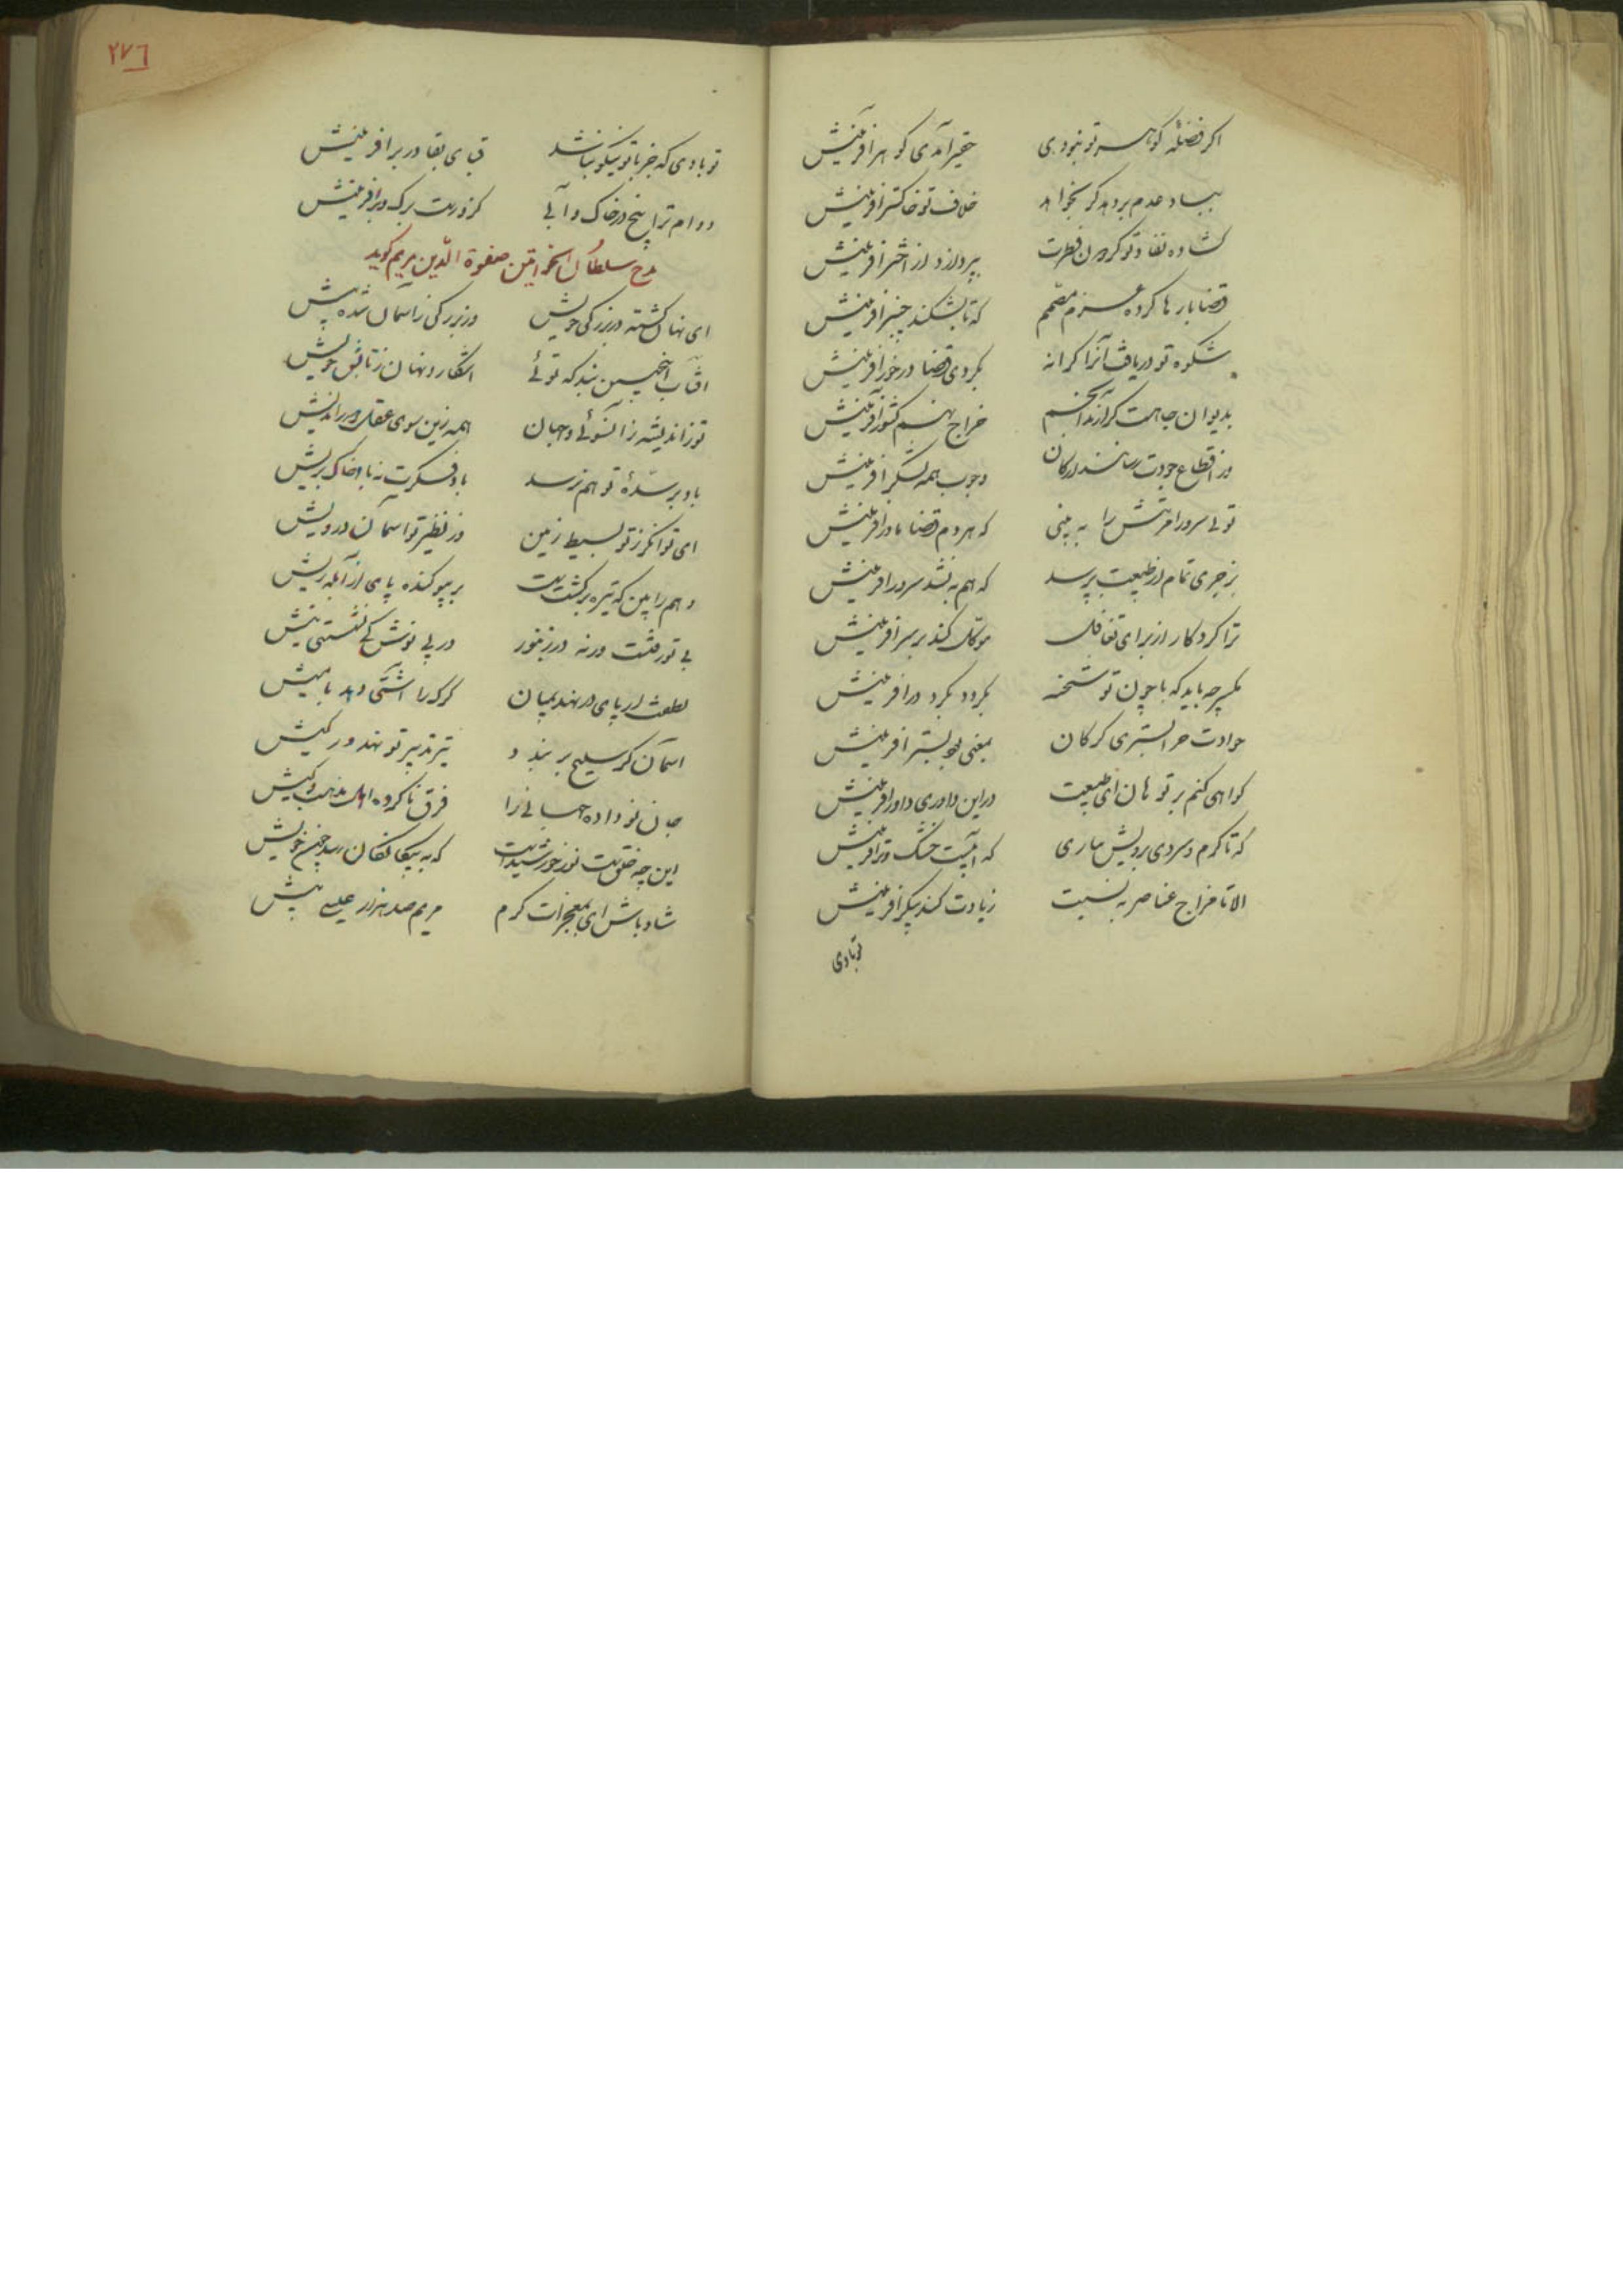 اکر فضلهٔ کوهر تو نبودی حقیر آمدی کوهر آفرینش
بباد عدم بردهد کر بخواهد خلاف تو خاکستر افرینش
کشاده نفاذ تو کر درن فطرت بپرد ازد از اختر افرینش
قضا بارها کرده عزم مصمم که تا بشکند چنبر افرینش
شکوه تو دریافت آنرا کرانه نکردی قضا درخور افرینش
بدیوان جاهت کزارند انجم خراج نهم کشور آفرینش
در اقطاع جودت رسانند ارکان وجوب همه لشکر افرینش
تویی سرور افرینش را به بینی که هر دم قضا مادر افرینش
بزجری تمام از طبیعت بپرسد که هم به نشد سرور افرینش
ترا کردکار از برای تفافل موکل کند بر سر افرینش
یکسر چه باید که با چون تو شخصی بکردد بکرد در افرینش
حوادث حر البستری کرکان بمعنی بود بستر افرینش
کواهی کنم بر تو هان ای طبیعت در این داوری داور افرینش
که تا کرم و سردی برویش نیاری که آنیست خشک و تر افرینش
الا تا مزاج عناصر به نسبت زیادت کند پیکر افرینش
تو بادی
۲۷۶
تو بادی که جز با تو نیکو نباشد قبای بقا در بر افرینش
دوام ترا بیخ در خاک و آبی کزو رست برک و بر افرینش
مدح سلطان الخواتین صفوة الدین مریم کوید
ای نهان کشته در بزرکی خویش وز بزرکی ز آسمان شده پیش
آفتاب اینچنین بود که توئی اشکار و نهان ز تابش خویش
تو ز اندیشه زان سوئی و جهان همه زین سوی عقل دوراندیش
باد بر سدهٔ تو هم نرسد باد فکرت نه باد خاک پریش
ای توانکر ز تو بسیط زمین وز نظیر تو آسمان درویش
وهم را بین که تیره برکشتست بر پیو کنده پای از آبله ریش
بی تو رفتست ورنه در زنبور در پی نوش کی نشستی نیش
لطفت ار پای در نهد بمیان کرک را آشتی دهد با میش
اسمان کر سلیح بر بندد تیر تدبیر تو نهد در کیش
جان نو داده جهانی را فرق ناکرده اهل مذهب و کیش
این چه خلقیست نور خورشیدست که به بیکانکان رسد چون خویش
شاد باش ای بمعجزات کرم مریم صد هزار عیسی بیش